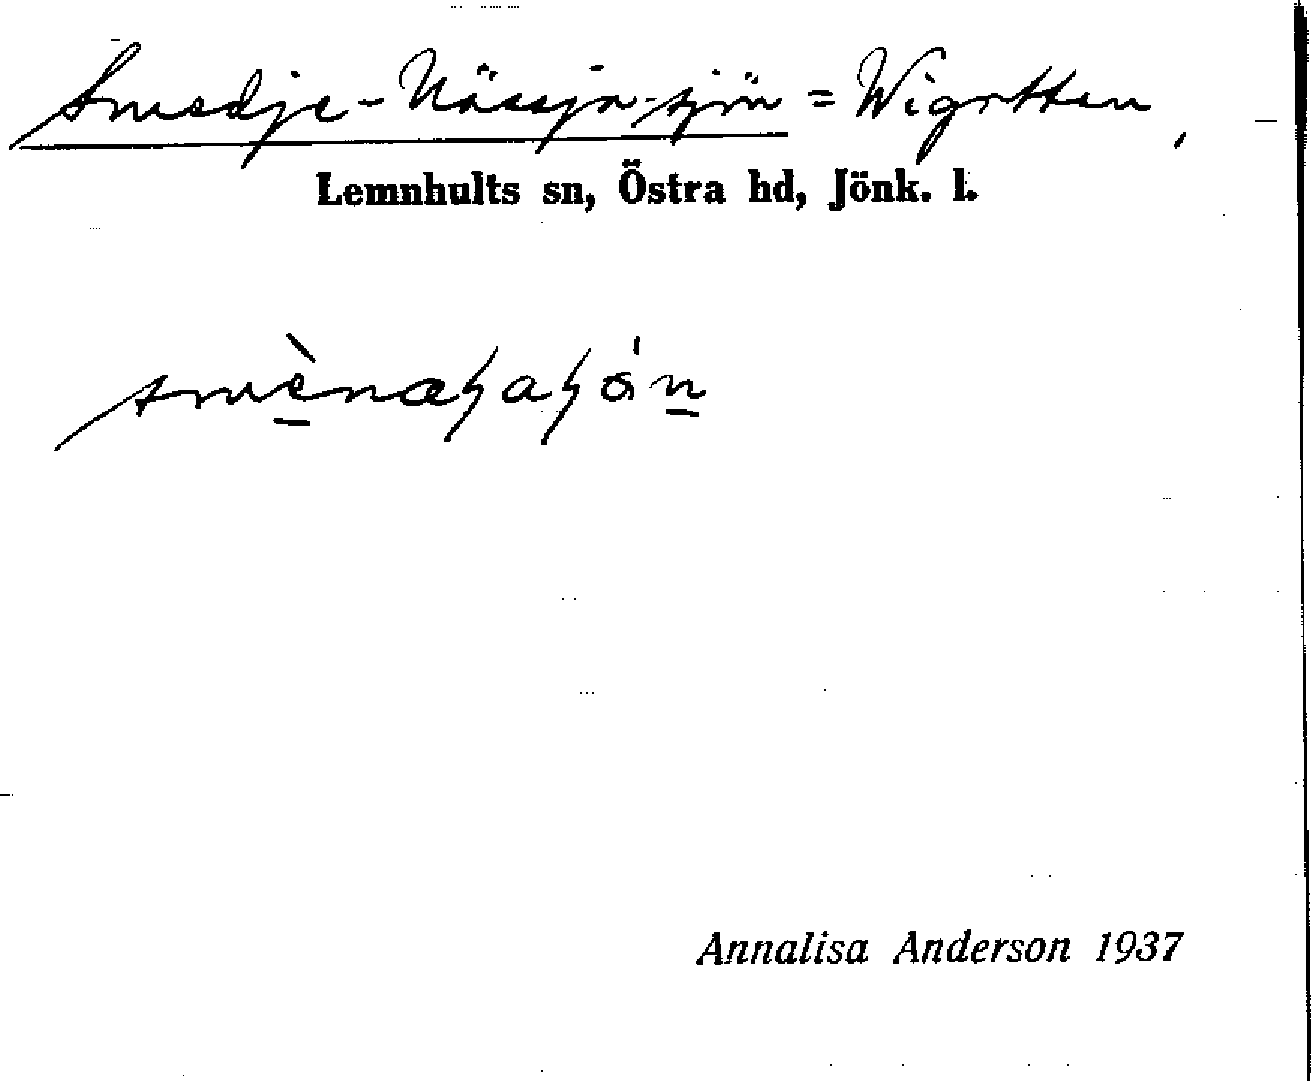 Smedje-Nässja-sjön = Wigotten,
Lemnhults sn, Östra hd, Jönk. l.
Annalisa Anderson 1937